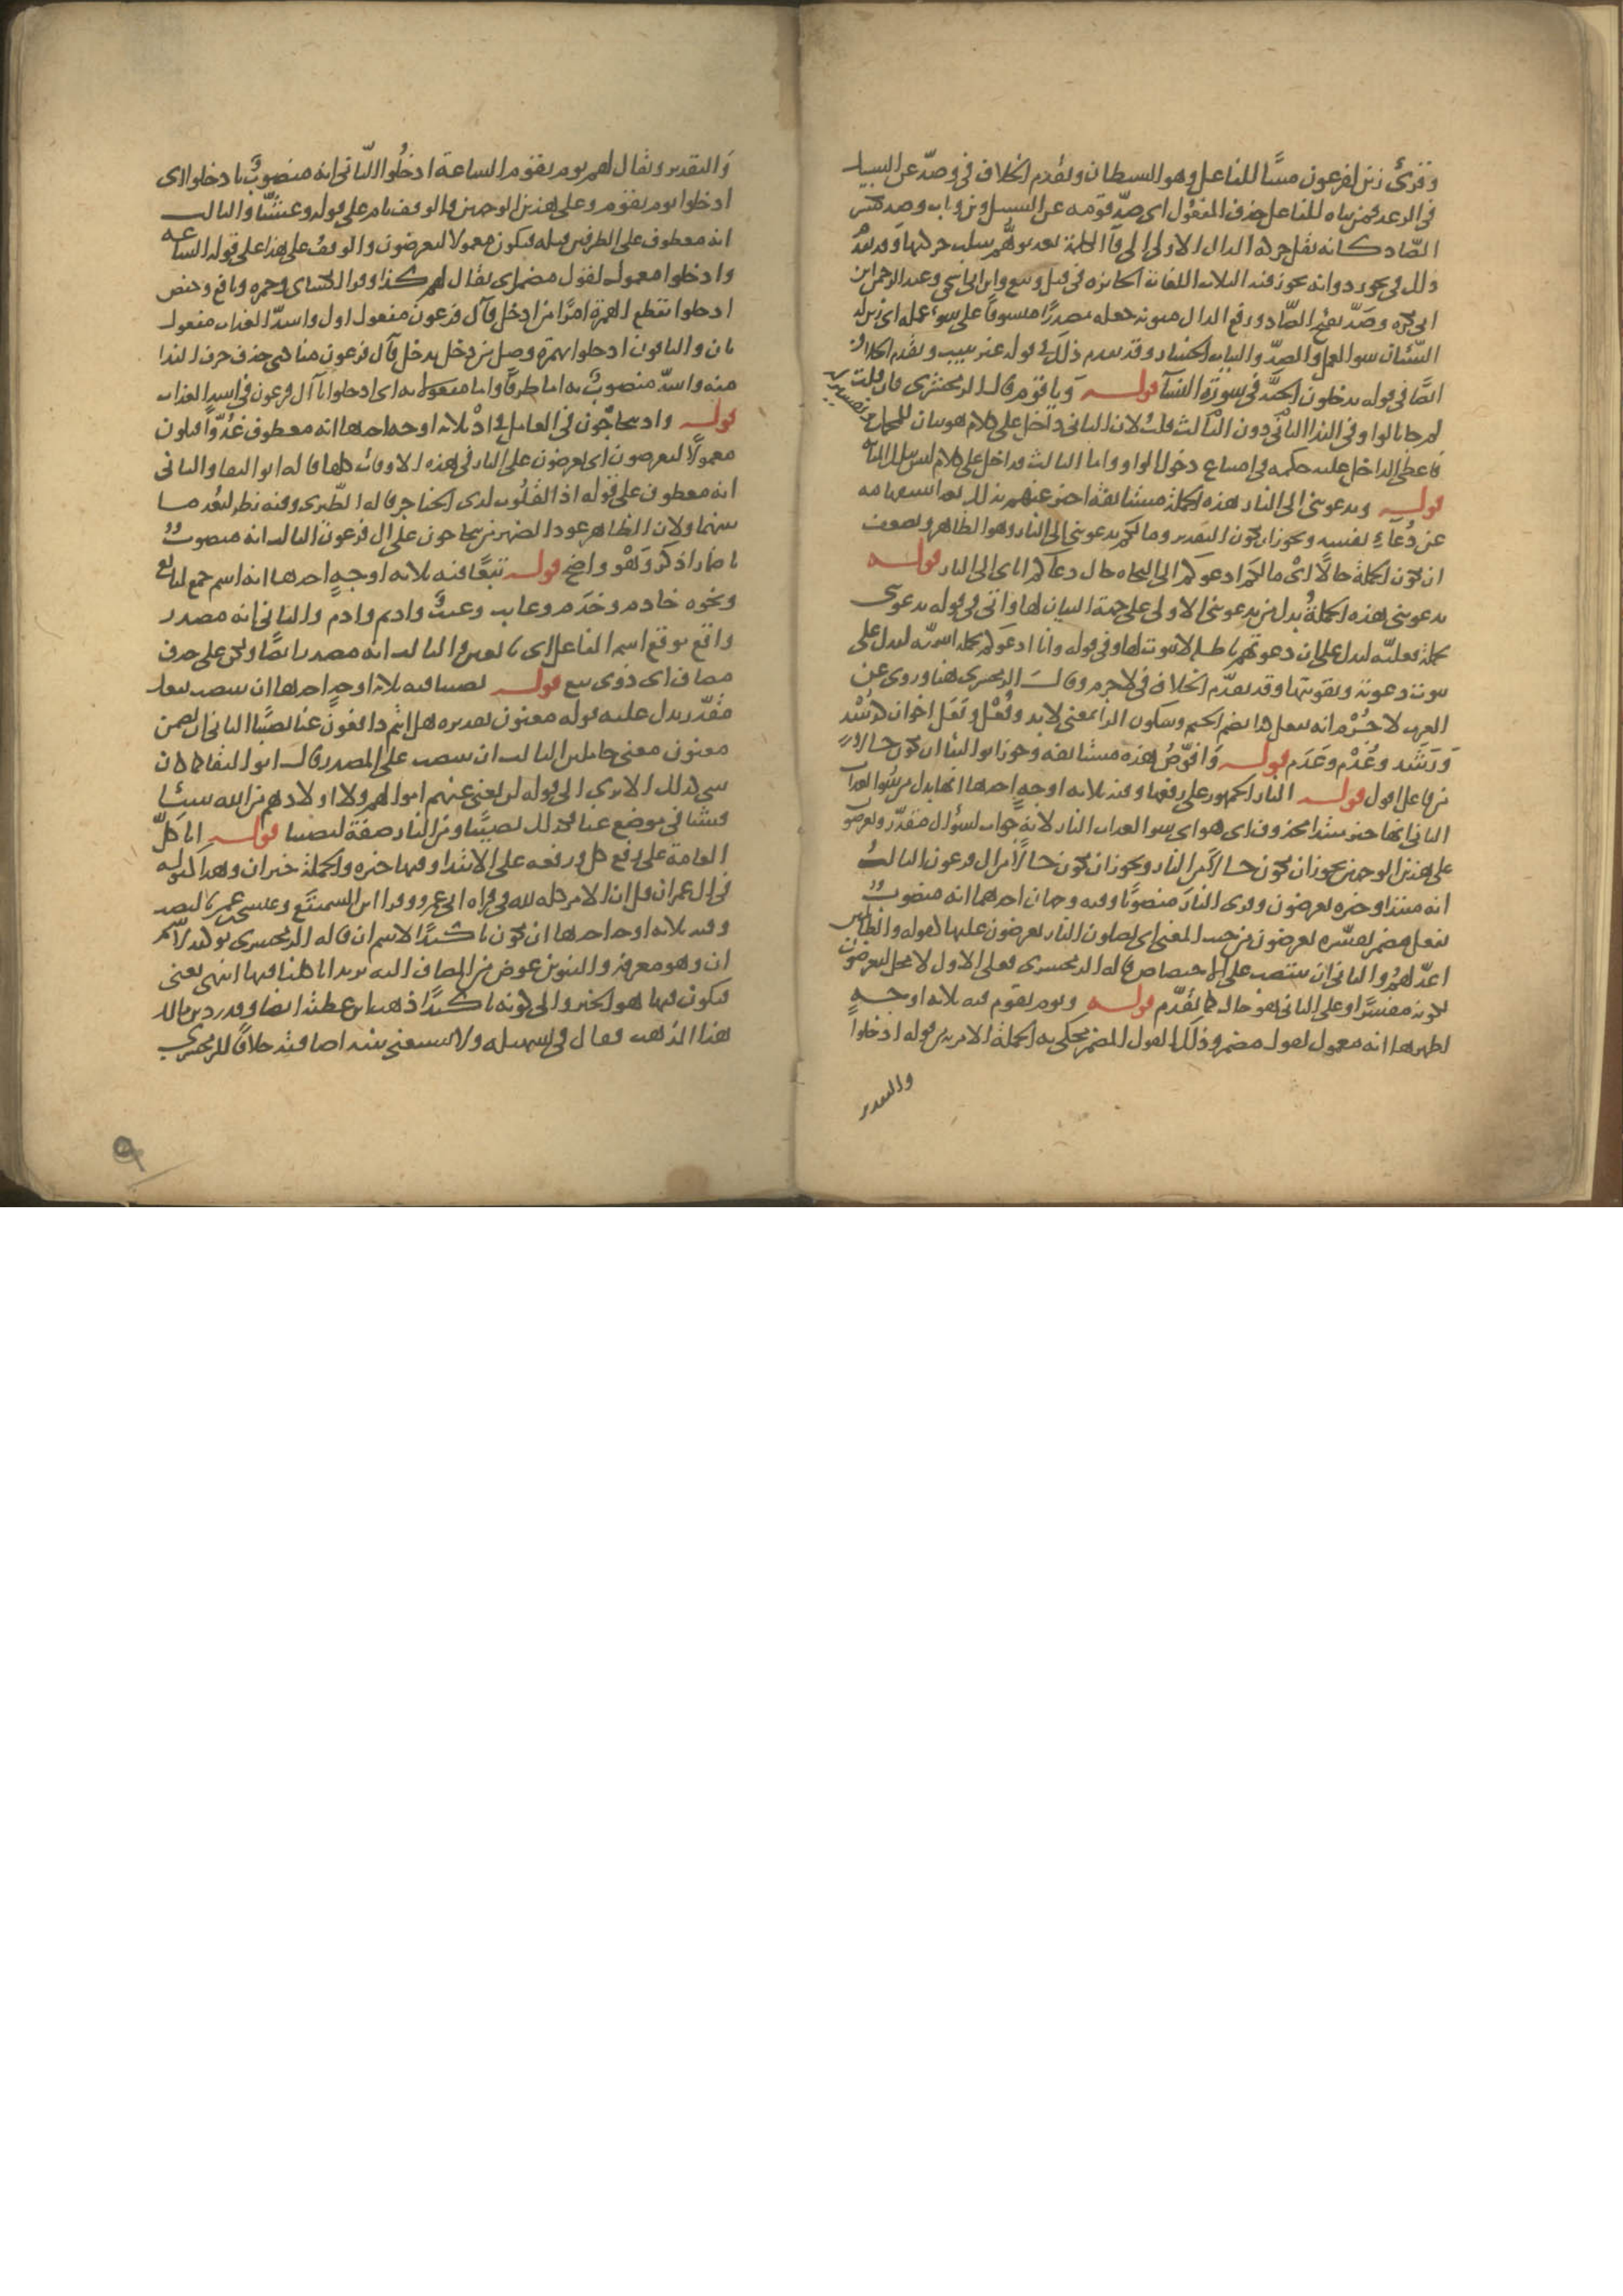 وقرئ زين لفرعون مبنيا للفاعل وهو الشيطان وتقدم الخلاف في وصد عن السبيل
في الرعد فمن بناه للفاعل حذف المفعول اى صد قومه عن السبيل وابن وثاب وصد بكسر
الصاد كانه نقل حركة الدال الاولى الى فاء الكلمة بعد توهم سلب حركتها وقد تقدم
ذلك في نحو ردوا انه يجوز فيه الثلاث اللغات الجائزة في قيل وبيع وابن ابي اسحق وعبد الرحمن بن
ابي بكرة وصد بفتح الصاد ورفع الدال منونة جعله مصدرا منسوقا على سوء عمله اى زين له
الشيطان سوا العمل والصد والتباب الخسار وقد تقدم ذلك في قوله غير تتبيب وتقدم الخلاف
ايضا في قوله يدخلون الجنة في سورة النسا قوله ويا قوم قال الزمخشري فان قلت
لم جا بالواو في الندا الثالث دون الثاني قلت لان الثاني داخل على كلام هو بيان للمجمل وتفسير له
فاعطى الداخل عليه حكمه في امتناع دخول الواو واما الثالث فداخل على كلام ليس بتلك المثابة
قوله وتدعونني الى النار هذه الجملة مستانفة اخبر عنهم بذلك بعد استفهامه
عن دعاء نفسه ويجوز ان يكون التقدير وما لكم تدعونني الى النار وهو الظاهر ويضعف
ان تكون الجملة حالا اى ما لكم ادعوكم الى النجاه حال دعائكم اياى الى النار قوله
تدعونني هذه الجملة بدل من تدعونني الاولى على جهة البيان لها واتى في قوله تدعونني
بجملة فعلية ليدل على ان دعوتهم باطلة لا ثبوت لها وفي قوله وانا ادعوكم بجملة اسمية ليدل على
ثبوت دعوته وتقويتها وقد تقدم الخلاف في لا جرم وقال الزمخشري هنا وروى عن
العرب لا جرم انه يفعل كذا بضم الجيم وسكون الرا بمعنى لا بد وفعل وفعل اخوان كرشد
ورشد وعدم وعدم قوله وافوض هذه مستانفة وجوز ابو البقا ان تكون حالا
من فاعل اقول قوله النار الجمهور على رفعها وفيه ثلاثه اوجه احدها انها بدل من سوا العذاب
الثاني انها خبر مبتدا محذوف اى هو اى سوا العذاب النار لانه جواب لسؤال مقدر ويعرضون
على هذين الوجهين يجوز ان يكون حالا من النار ويجوز ان يكون حالا من ال فرعون الثالث
انه مبتدا وخبره يعرضون وقرى النار منصوبا وفيه وجهان احدهما انه منصوب
بفعل مضمر يفسره يعرضون من حيث المعنى اى يصلون النار يعرضون عليها كقوله والظالمين
اعد لهم والثاني ان ينتصب على الاختصاص قاله الزمخشري فعلى الاول لا محل ليعرضون
لكونه مفسرا وعلى الثاني هو حال كما تقدم قوله ويوم تقوم فيه ثلاثه اوجه
اظهرها انه معمول لقول مضمر وذلك القول المضمر يحكى به الجملة الامرية من قوله ادخلوا
والتقدير
والتقدير ويقال لهم يوم تقوم الساعة ادخلوا الثاني انه منصوب بادخلوا اى
ادخلوا يوم تقوم وعلى هذين الوجهين فالوقف تام على قوله وعشيا والثالث
انه معطوف على الظرفين قبله فيكون معمولا ليعرضون والوقف على هذا على قوله الساعه
وادخلوا معمول لقول مضمر اى يقال لهم كذا وقرا الكساى وحمزه ونافع وحفص
ادخلوا بقطع الهمزة امرا من ادخل فآل فرعون مفعول اول واشد العذاب مفعول
ثان والباقون ادخلوا بهمزة وصل من دخل يدخل فآل فرعون منادى حذف حرف الندا
منه واشد منصوب به اما ظرفا واما مفعولا به اى ادخلوا يا آل فرعون في اشد العذاب
قوله واذ يتحاجون في العامل في اذ ثلاثه اوجه احدها انه معطوف غدوا فيكون
معمولا ليعرضون اى يعرضون على النار في هذه الاوقات كلها قاله ابو البقا والثاني
انه معطوف على قوله اذ القلوب لدى الحناجر قاله الطبرى وفيه نظر لبعد ما
بينهما ولان الظاهر عود الضمير من يتحاجون على ال فرعون الثالث انه منصوب
باضمار اذكر وهو واضح قوله تبعا فيه ثلاثه اوجه احدها انه اسم جمع لتابع
ونحوه خادم وخدم وغايب وغيب واديم وادم والثاني انه مصدر
واقع موقع اسم الفاعل اى تابعين والثالث انه مصدر ايضا ولكن على حذف
مضاف اى ذوى تبع قوله نصيبا فيه ثلاثه اوجه احدها ان ينتصب بفعل
مقدر يدل عليه قوله مغنون تقديره هل انتم دافعون عنا نصيبا الثاني ان يضمن
مغنون معنى حاملين الثالث ان ينتصب على المصدر قال ابو البقا كما كان
شى كذلك الا ترى الى قوله لن تغنى عنهم اموالهم ولا اولادهم من الله شيئا
فشيئا في موضع غنا فكذلك نصيبا ومن النار صفة لنصيبا قوله انا كل
العامة على رفع كل ورفعه على الابتدا وفيها خبره والجملة خبر ان وهذا كقوله
في ال عمران قل ان الامر كله لله في قراه ابي عمرو وقرا ابن السميفع وعيسى بن عمر بالنصب
وفيه ثلاثه اوجه احدها ان يكون تاكيدا لاسم ان قاله الزمخشري توكيد لاسم
ان وهو معرفة والتنوين عوض من المضاف اليه يريد انا كلنا فيها انتهى يعنى
فيكون فيها هو الخبر والى كونه تاكيدا ذهب ابن عطية ايضا وقد رد ابن مالك
هذا المذهب فقال في تسهيله ولا يستغنى بنيه اضافته خلافا للزمخشري